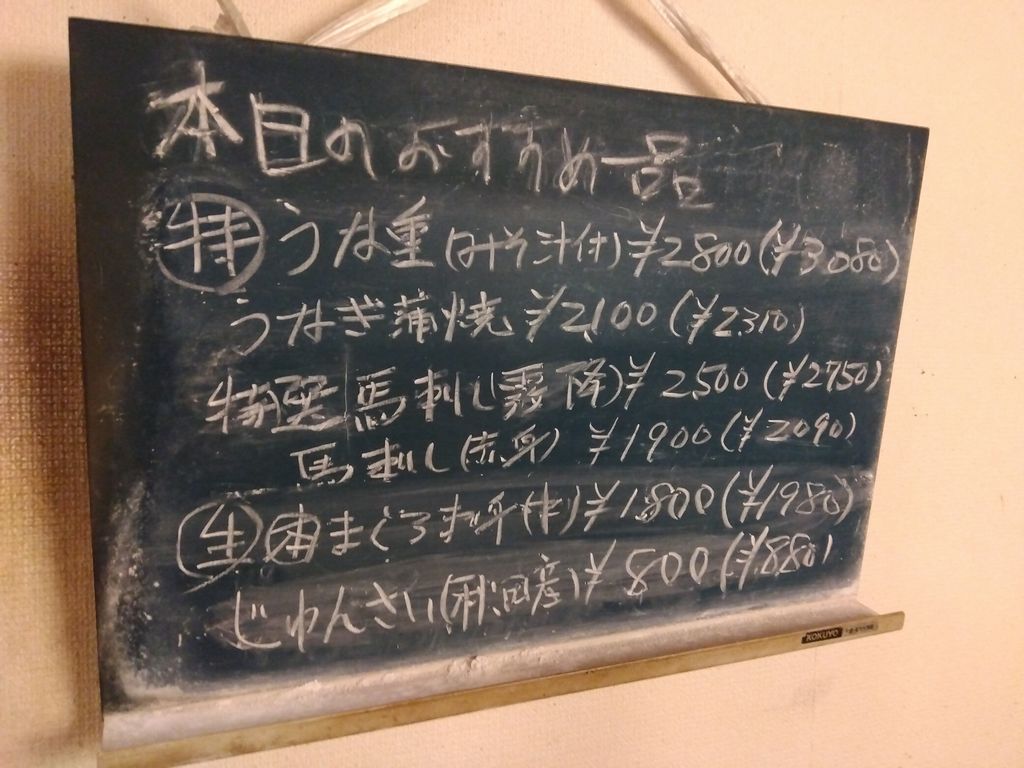 本日のおすすめ一品
特 うな重(みそ汁付)¥2800(¥3.080)
うなぎ蒲焼 ¥2,100(¥2.310)
特選 馬刺し霜降)¥2,500(¥2750)
馬刺し(赤身)¥1900(¥2090)
生 本まぐろ ¥1,800(¥1980)
じゅんさい(秋田産)¥800(¥880)
KOKUYO